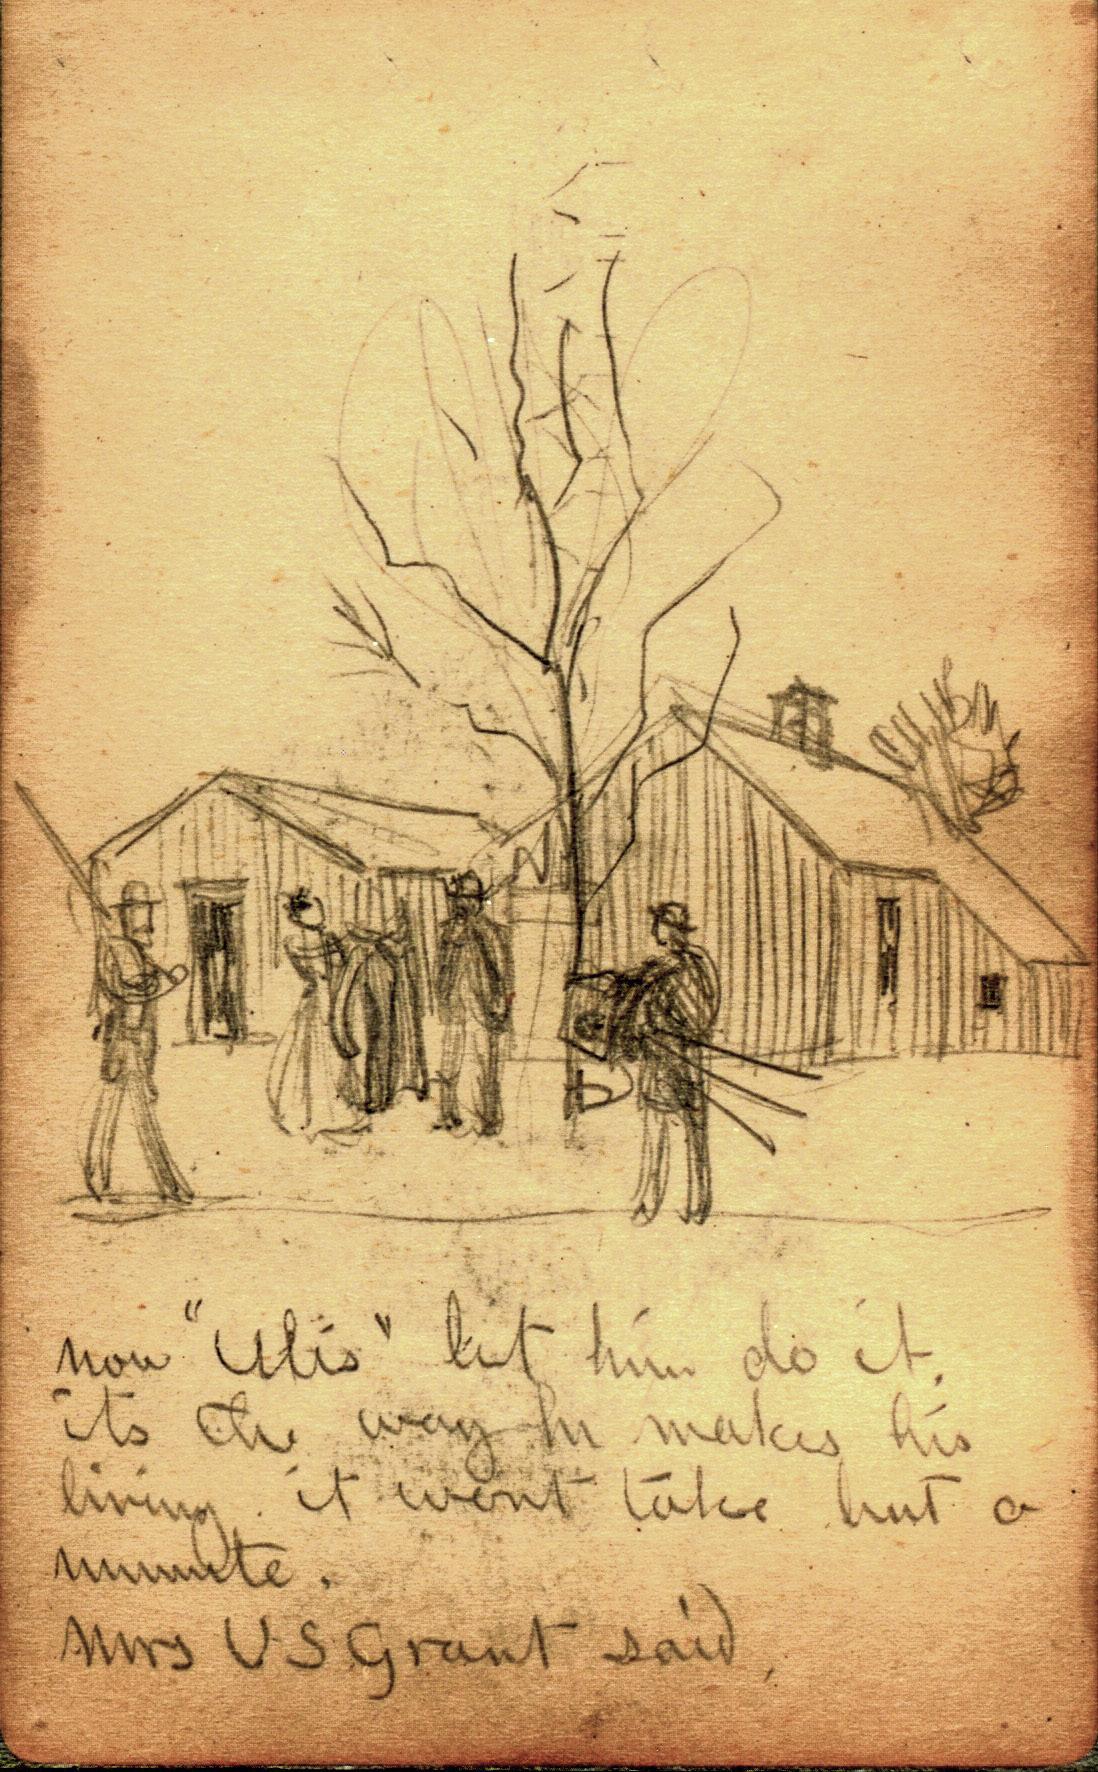 now "Ulis" let him do it.
its the way he makes his
living. it wont take but a
minute.
Mrs U S Grant said,